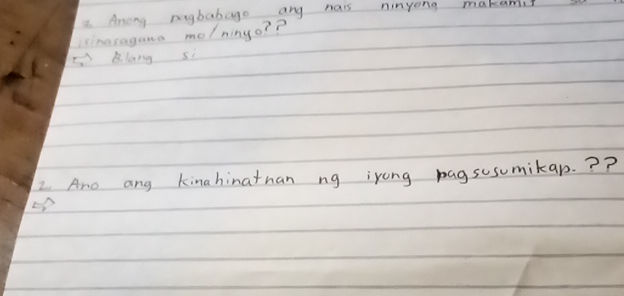 2. Anong pagbabago ang nais ninyong makamit
isinasagawa mo/ninyo??
Bilang si
2. Ano ang kinahinatnan ng iyong pagsusumikap.??